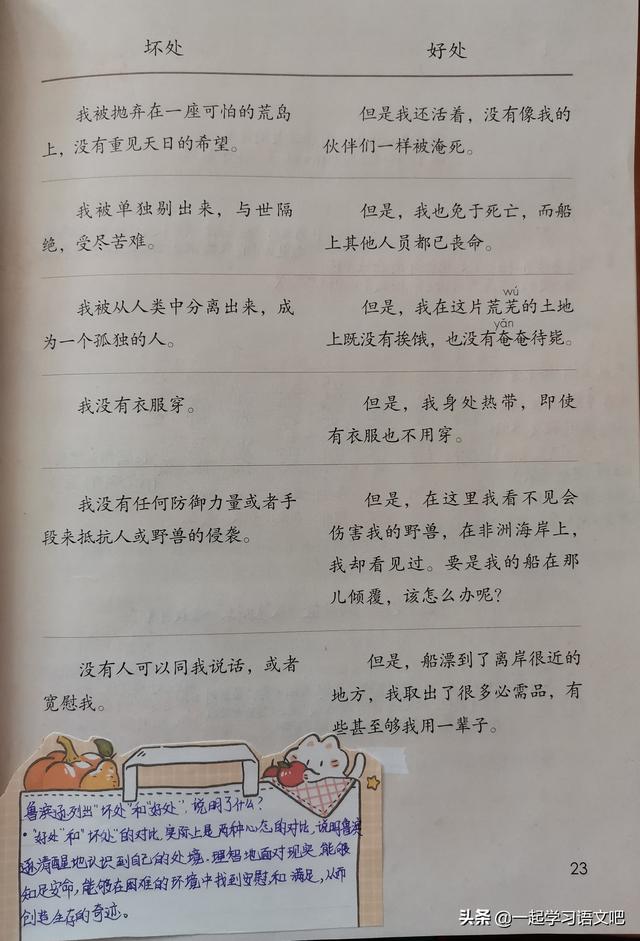 坏处 好处
我被抛弃在一座可怕的荒岛
上，没有重见天日的希望。
但是我还活着，没有像我的
伙伴们一样被淹死。
我被单独剔出来，与世隔
绝，受尽苦难。
但是，我也免于死亡，而船
上其他人员都已丧命。
我被从人类中分离出来，成
为一个孤独的人。
wú
但是，我在这片荒芜的土地
yǎn
上既没有挨饿，也没有奄奄待毙。
我没有衣服穿。
但是，我身处热带，即使
有衣服也不用穿。
我没有任何防御力量或者手
段来抵抗人或野兽的侵袭。
但是，在这里我看不见会
伤害我的野兽，在非洲海岸上，
我却看见过。要是我的船在那
儿倾覆，该怎么办呢？
没有人可以同我说话，或者
宽慰我。
但是，船漂到了离岸很近的
地方，我取出了很多必需品，有
些甚至够我用一辈子。
鲁滨逊列出“坏处”和“好处”，说明了什么？
·“好处”和“坏处”的对比，实际上是两种心态的对比，说明鲁滨
逊清醒地认识到自己的处境，理智地面对现实，能够
知足安命，能够在困难的环境中找到安慰和满足，从而
创造生存的奇迹。
23
头条 @一起学习语文吧